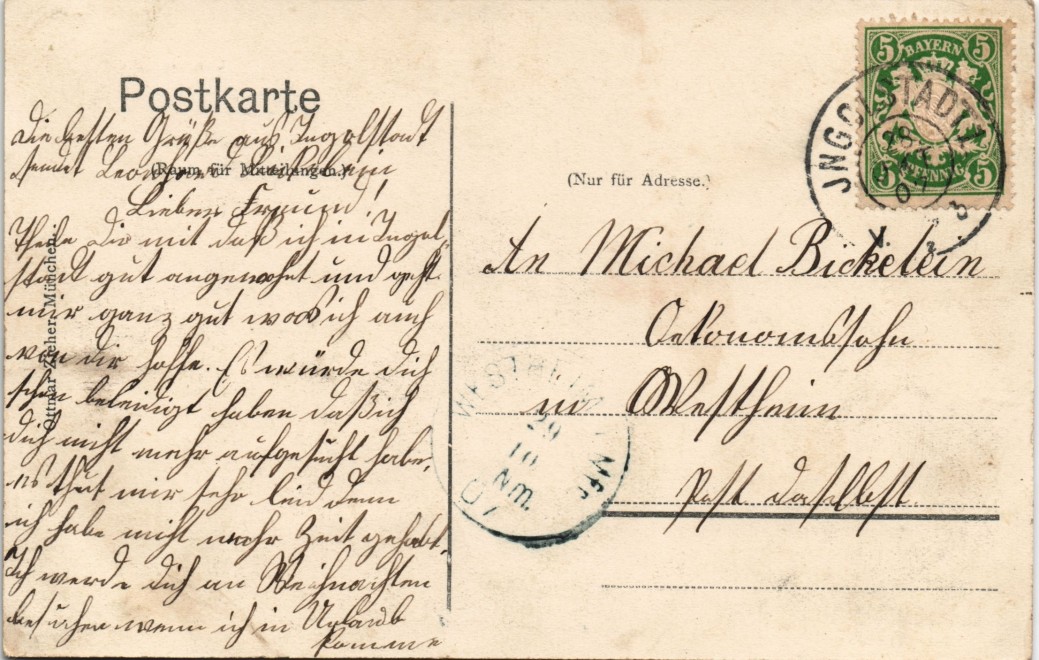 Postkarte
Die besten Grüße aus Ingolstadt
sendet Leonhard
(Raum für Mitteilungen.)
Lieber Freund!
Theile Dir mit daß ich in Ingol-
stadt gut angewohnt und geht
mir ganz gut was ich auch
von dir hoffe. Es würde dich
schon beleidigt haben daß ich
dich nicht mehr aufgesucht habe,
es thut mir sehr leid denn
ich habe nicht mehr Zeit gehabt.
Ich werde dich an Weihnachten
besuchen wenn ich in Urlaub
komme
Ottmar Zieher, München.
BAYERN
5 5
5 5
PFENNIG
JNGOLSTADT 2
28
07
(Nur für Adresse.)
An Michael Bickelein
Oekonomssohn
in Westheim
Post daselbst
WESTHEIM
29
10
Nm.